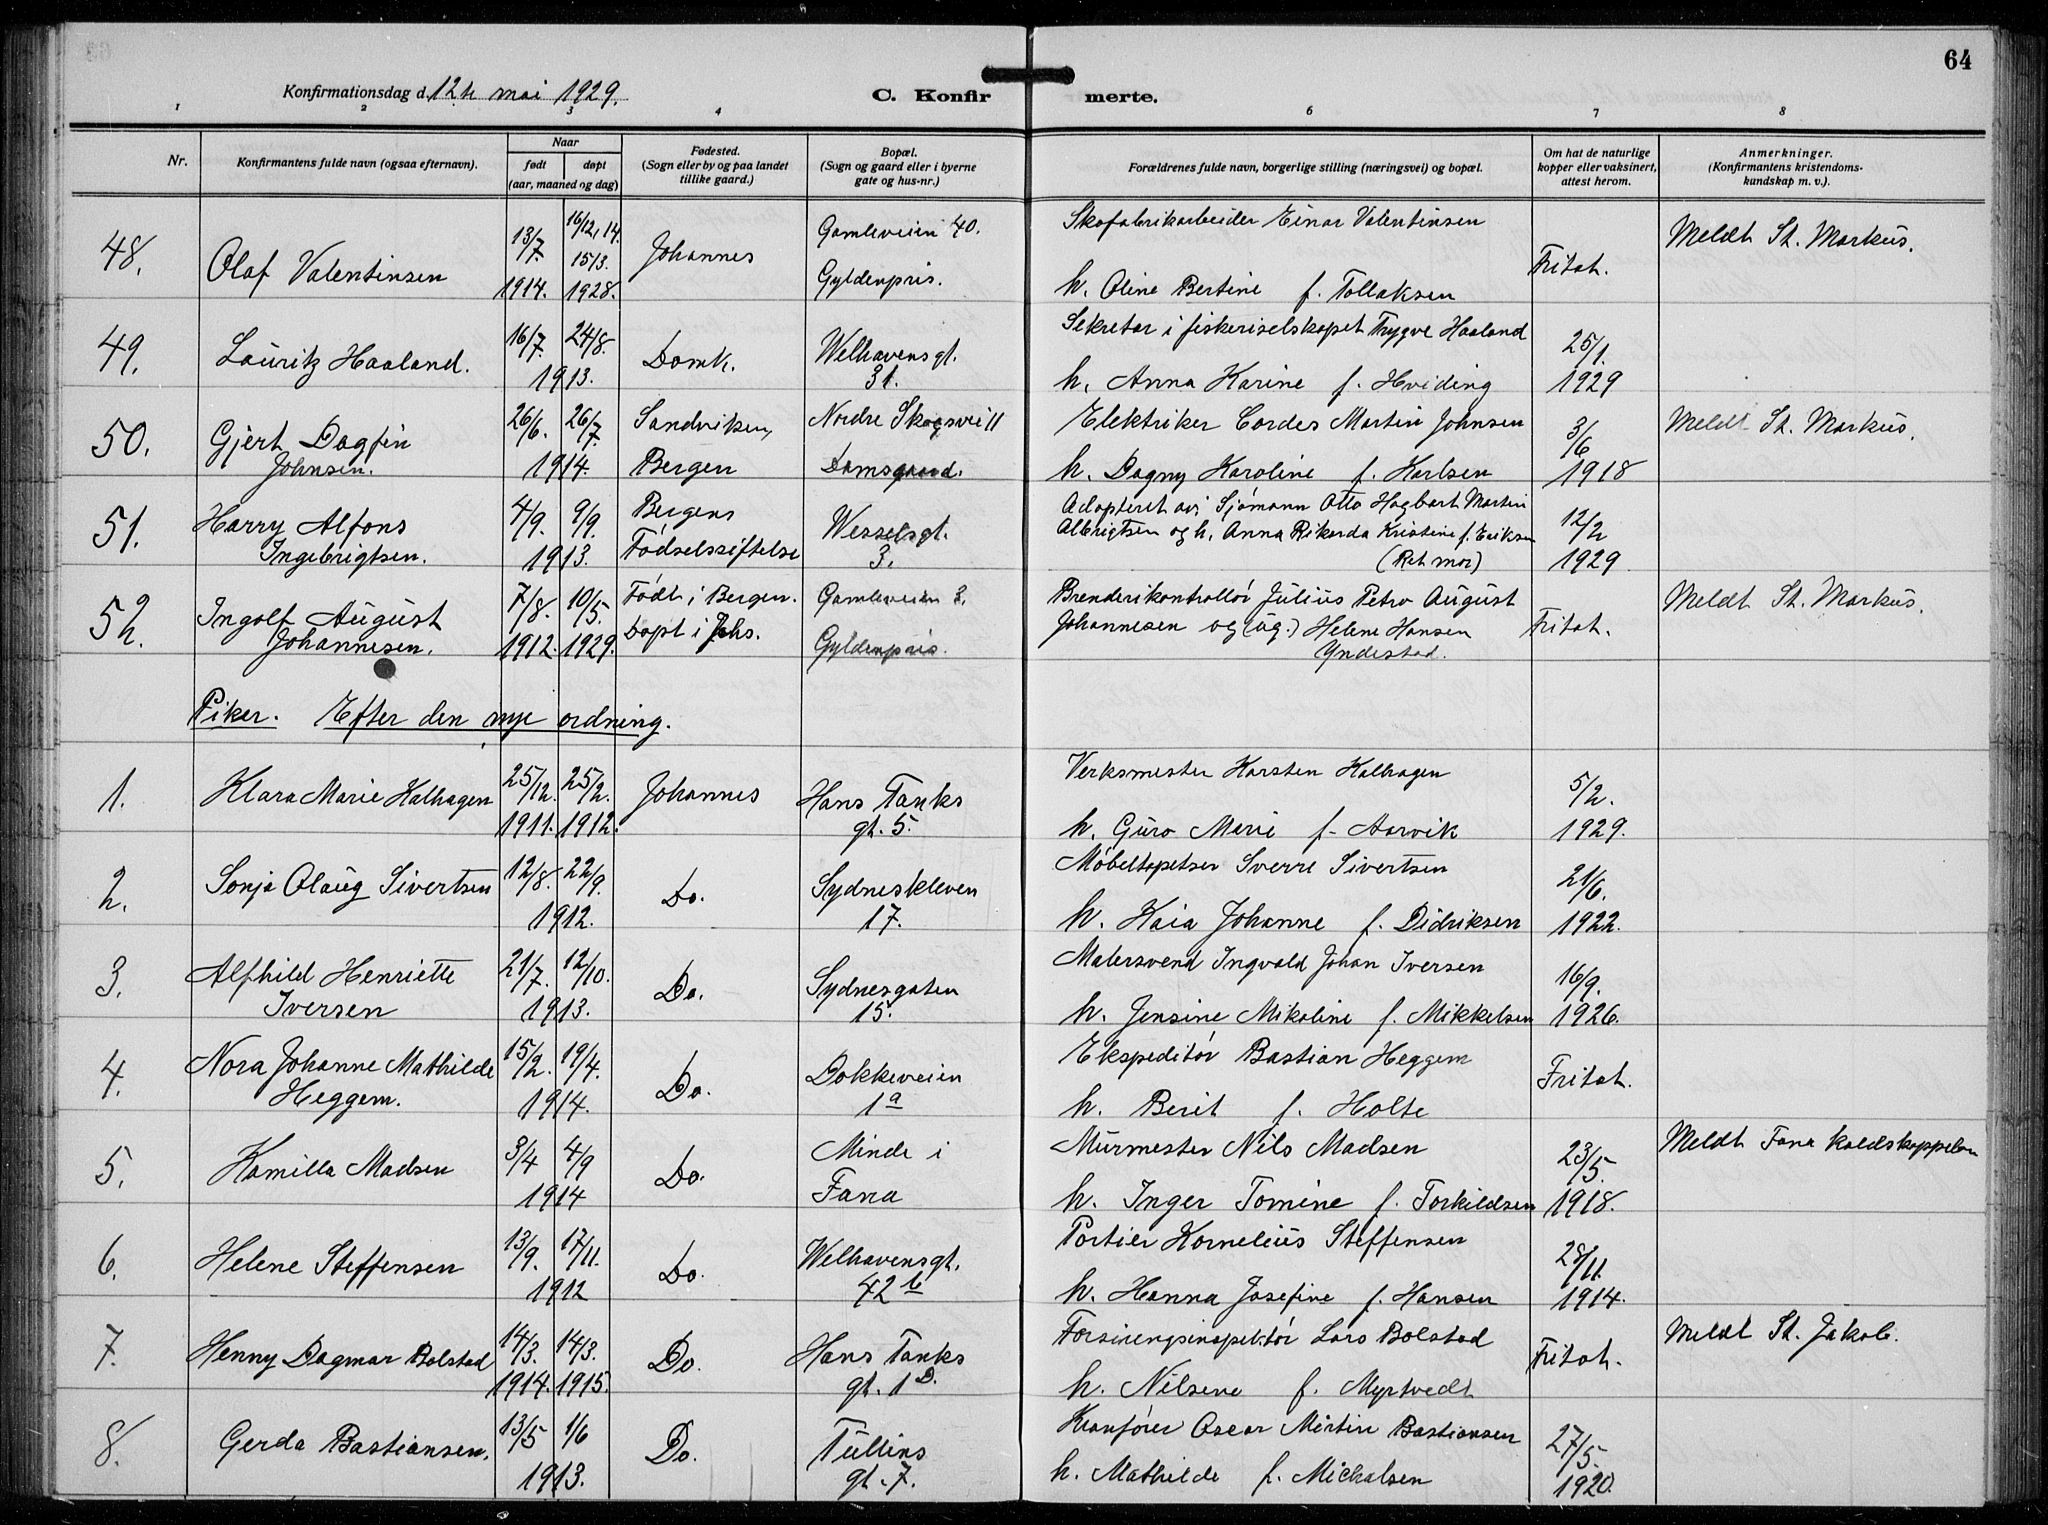 64
Konfirmationsdag d. 12te mai 1929.
C. Konfirmerte.
1 2 3 4 5 6 7 8
Nr.
Konfirmantens fulde navn (ogsaa efternavn).
Naar
født døpt
(aar, maaned og dag)
Fødested.
(Sogn eller by og paa landet
tillike gaard.)
Bopæl.
(Sogn og gaard eller i byerne
gate og hus-nr.)
Forældrenes fulde navn, borgerlige stilling (næringsvei) og bopæl.
Om hat de naturlige
kopper eller vaksinert,
attest herom.
Anmerkninger.
(Konfirmantens kristendoms-
kundskap m. v.).
48.
Olaf Valentinsen
13/7. 1914.
16/12, 14. 15/3. 1928.
Johannes
Gamleveien 40.
Gyldenpris.
Skofabrikarbeider Einar Valentinsen
h. Oline Bertine f. Tollaksen
Fritat.
Meldt St. Markus.
49.
Lauritz Haaland.
16/7. 24/8.
1913.
Domk.
Welhavensgt.
31.
Sekretær i fiskeriselskapet Trygve Haaland
h. Anna Karine f. Hviding
25/1.
1929
50.
Gjert Dagfin
Johnsen.
26/6. 26/7.
1914.
Sandviken,
Bergen
Nordre Skogsvei 11
Damsgaard.
Elektriker Cordes Martin Johnsen
h. Dagny Karoline f. Karlsen
3/6
1918
Meldt St. Markus.
51.
Harry Alfons
Ingebrigtsen.
4/9. 9/9.
1913.
Bergens
Fødselsstiftelse
Wesselsgt.
3.
Adopteret av: Sjømann Otto Hagbart Martin
Albrigtsen og h. Anna Rikarda Kristine f. Eriksen
(Ret mor)
12/2
1929
52.
Ingolf August
Johannesen.
7/8. 10/5.
1912. 1929.
Født i Bergen.
Døpt i Johs.
Gamleveien 2.
Gyldenpris.
Brenderikontrollør Julius Petro August
Johannesen og (ug.) Helene Hansen
Yndestad.
Fritat.
Meldt St. Markus.
Piker. Efter den nye ordning.
1.
Klara Marie Kalhagen
25/12. 25/2.
1911. 1912.
Johannes
Hans Tanks
gt. 5.
Verksmester Karsten Kalhagen
h. Guro Marie f. Aarvik
5/2.
1929.
2.
Sonja Olaug Sivertsen
12/8. 22/9.
1912.
Do.
Sydneskleven
17.
Møbeltapetser Sverre Sivertsen
h. Kaia Johanne f. Didriksen
21/6.
1922.
3.
Alfhild Henriette
Iversen
21/7. 12/10.
1913.
Do.
Sydnesgaten
15.
Malersvend Ingvald Johan Iversen
h. Jensine Mikaline f. Mikkelsen
16/9.
1926.
4.
Nora Johanne Mathilde
Heggem.
15/2. 19/4.
1914.
Do.
Dokkeveien
1a
Ekspeditør Bastian Heggem
h. Berit f. Holte
Fritat.
5.
Kamilla Madsen
3/4 4/9
1914
Do.
Minde i
Fana
Murmester Nils Madsen
h. Inger Tomine f. Torkildsen
23/5.
1918.
Meldt Fana
6.
Helene Steffensen
13/9. 17/11.
1912
Do.
Welhavensgt.
42 b
Portier Kornelius Steffensen
h. Hanna Josefine f. Hansen
28/11.
1914.
7.
Henny Dagmar Bolstad
14/3. 14/3.
1914. 1915.
Do.
Hans Tanks
gt. 1 D.
Forsikringsinspektør Lars Bolstad
h. Nilsine f. Myrtvedt
Fritat.
Meldt St. Jakob.
8.
Gerda Bastiansen.
13/5 1/6
1913.
Do.
Tullins
gt. 7.
Kranfører Oscar Martin Bastiansen
h. Mathilde f. Michalsen
27/5.
1920.